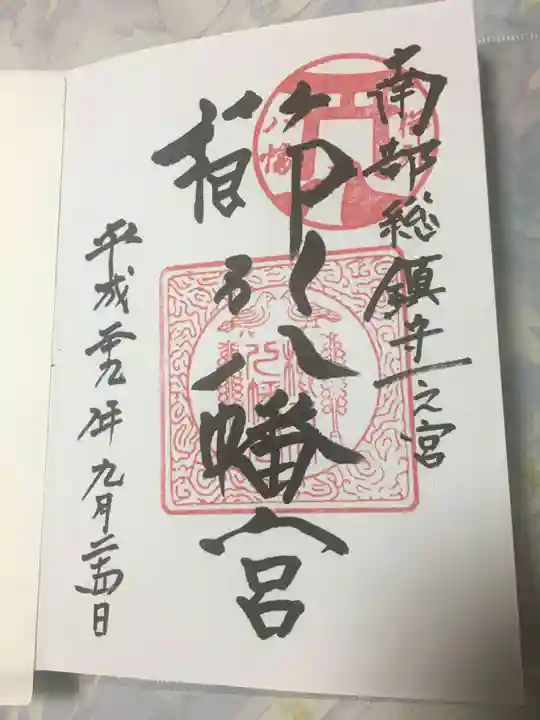 南部総鎮守一之宮
櫛引八幡宮
平成二十九年九月二十四日